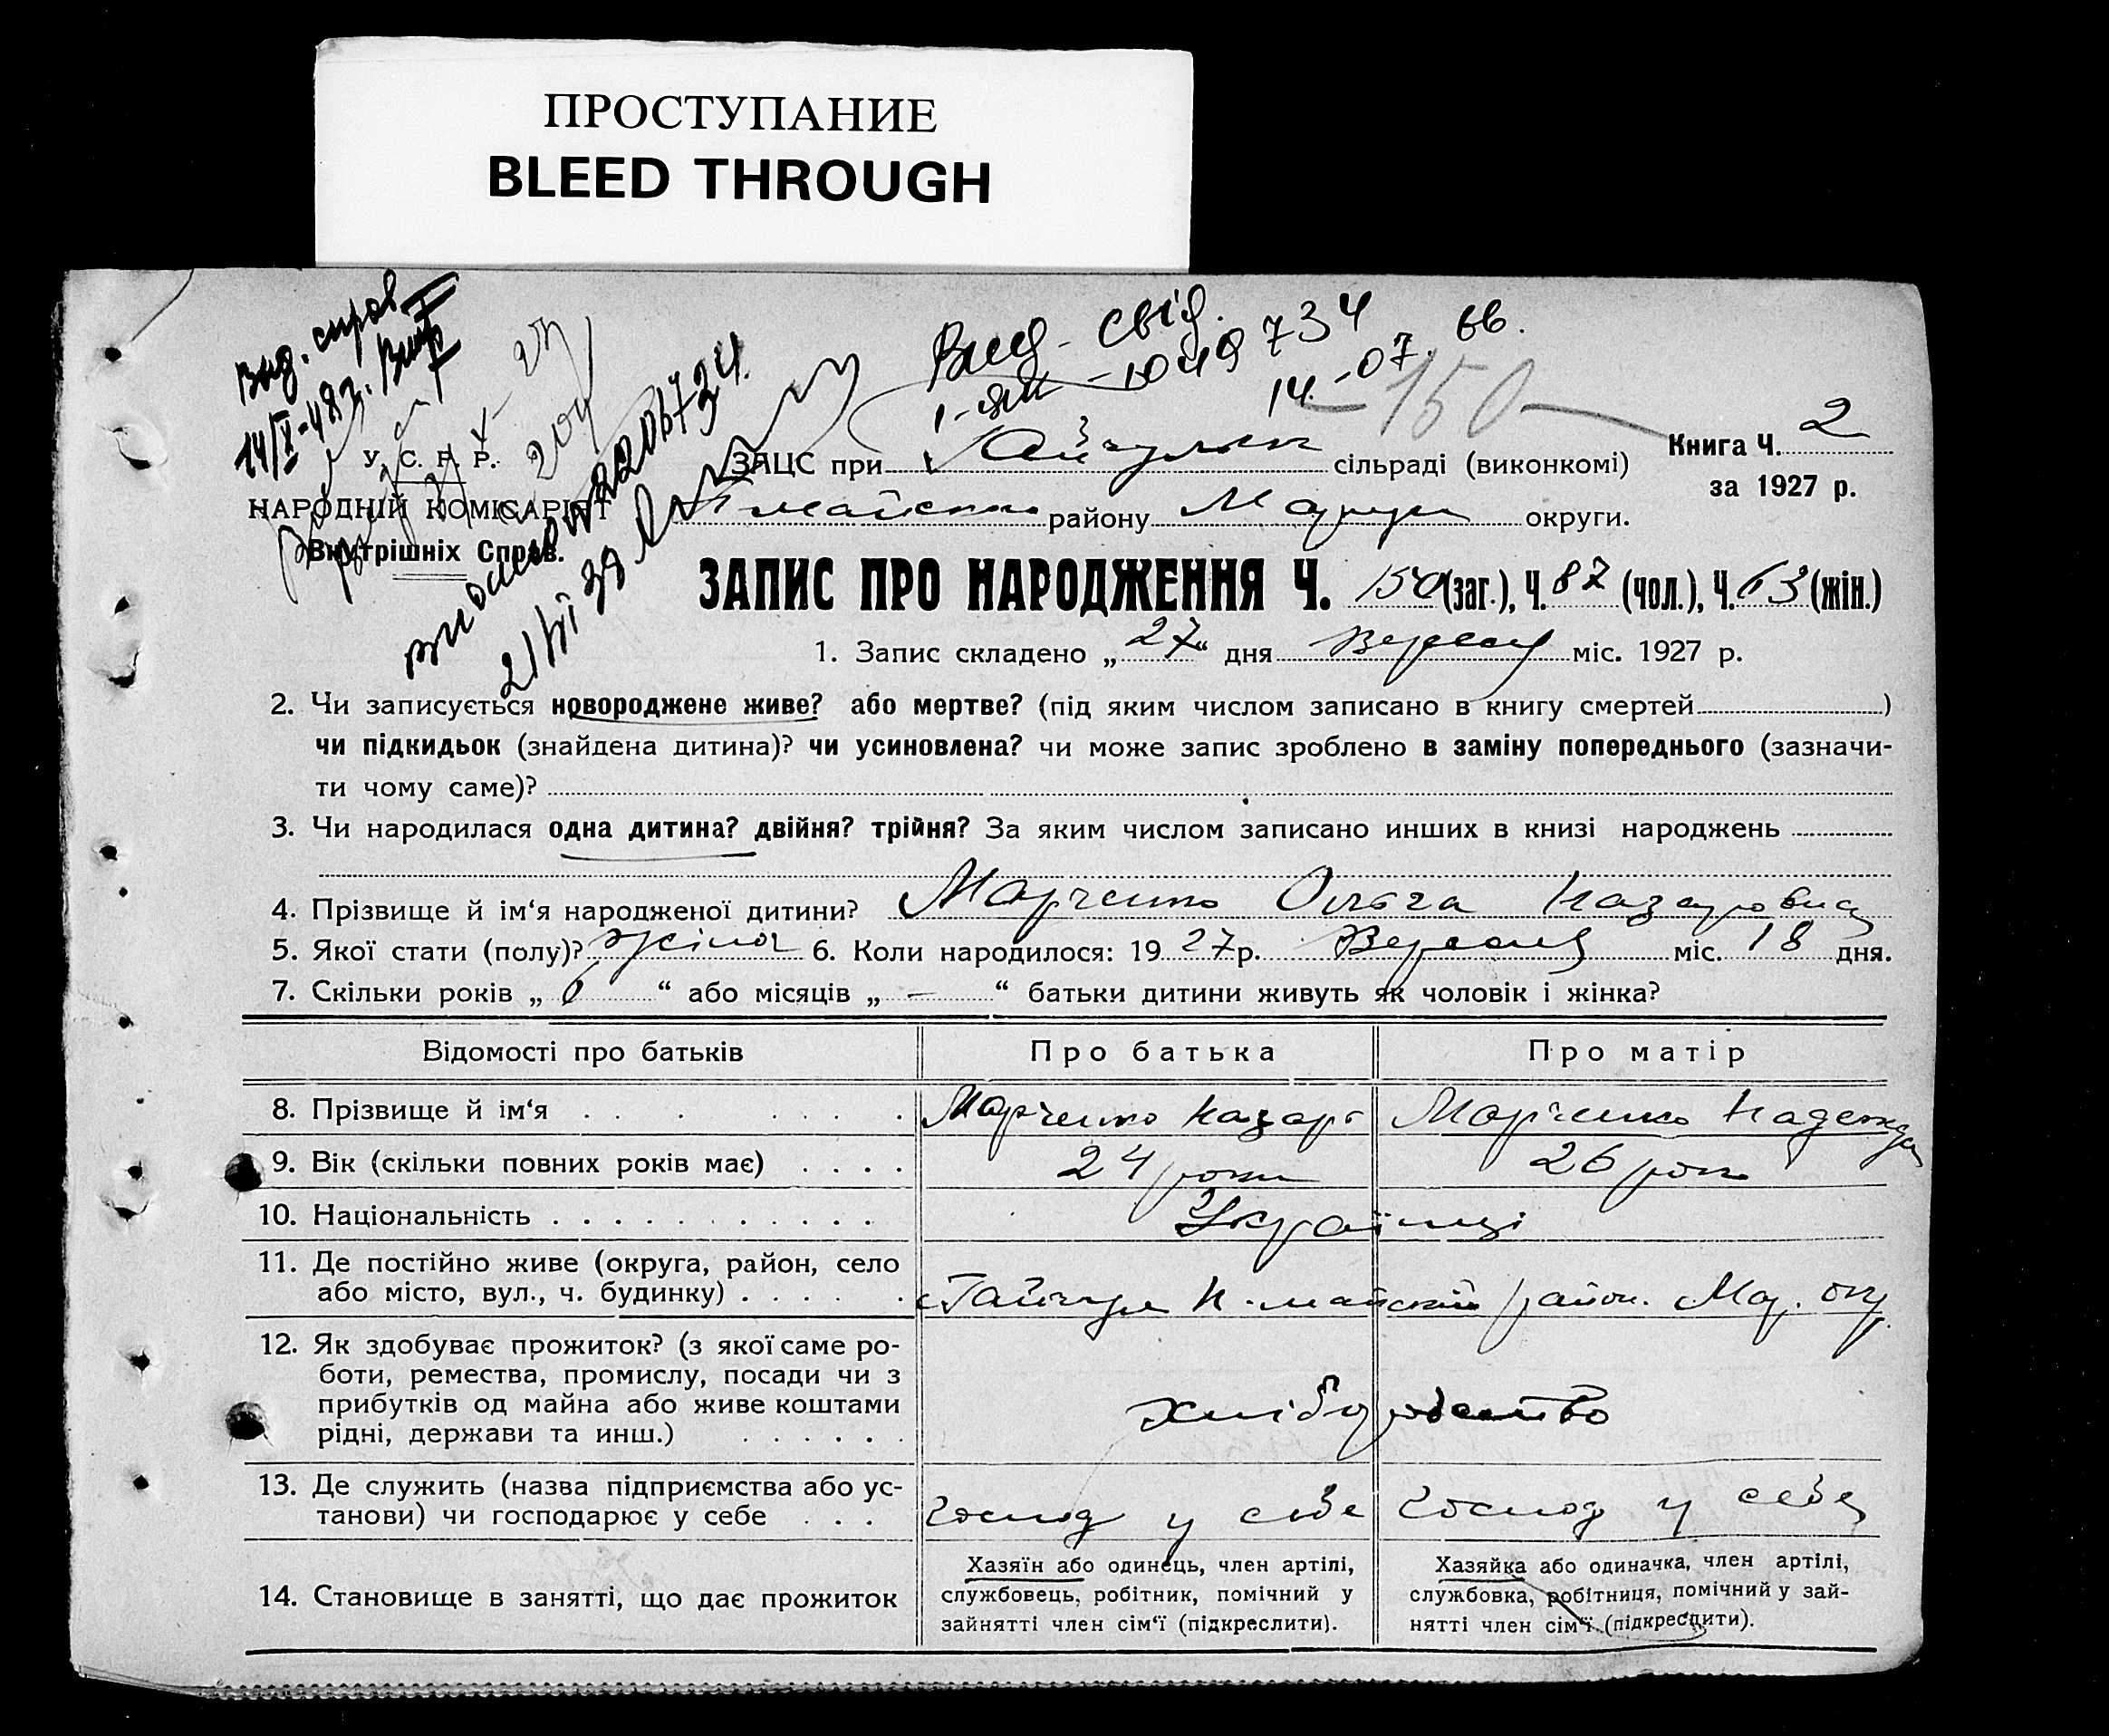 ПРОСТУПАНИЕ
BLEED THROUGH
Вид. справ.
Вид. свід.
I-ЯП-1049734
14.-07. 66.
150
У. С. Р. Р.
НАРОДНІЙ КОМІСАРІЯТ
Внутрішніх Справ.
Книга Ч. 2
за 1927 р.
ЗАЦС при Гайчулськ сільраді (виконкомі)
районy Маріуп округи.
ЗАПИС ПРО НАРОДЖЕННЯ Ч. 150 (заг.), Ч. 87 (чол.), Ч. 63 (жін.)
1. Запис складено „27“ дня Вересня міс. 1927 р.
2. Чи записується новороджене живе? або мертве? (під яким числом записано в книгу смертей )
чи підкидьок (знайдена дитина)? чи усиновлена? чи може запис зроблено в заміну попереднього (зазначи-
ти чому саме)?
3. Чи народилася одна дитина? двійня? трійня? За яким числом записано инших в книзі народжень
4. Прізвище й ім‘я народженої дитини? Марченко Ольга Назаровна
5. Якої стати (полу)? жіноч 6. Коли народилося: 1927 р. Вересня міс. 18 дня.
7. Скільки років „ 6 “ або місяців „ — “ батьки дитини живуть як чоловік і жінка?
Відомості про батьків Про батька Про матір
8. Прізвище й ім‘я Марченко Назарь Марченко Надежда
9. Вік (скільки повних років має) 24 роки 26 рок
10. Національність Українці
11. Де постійно живе (округа, район, село
або місто, вул., ч. будинку) Гайчул Н.-майский район. Мар. окр.
12. Як здобуває прожиток? (з якої саме ро-
боти, ремества, промислу, посади чи з
прибутків од майна або живе коштами
рідні, держави та инш.) хліборобство
13. Де служить (назва підприємства або ус-
танови) чи господарює у себе Господ у себе Господ у себе
14. Становище в занятті, що дає прожиток
Хазяїн або одинець, член артілі,
службовець, робітник, помічний у
зайнятті член сім‘ї (підкреслити).
Хазяйка або одиначка, член артілі,
службовка, робітниця, помічний у зай-
нятті член сім‘ї (підкреслити).